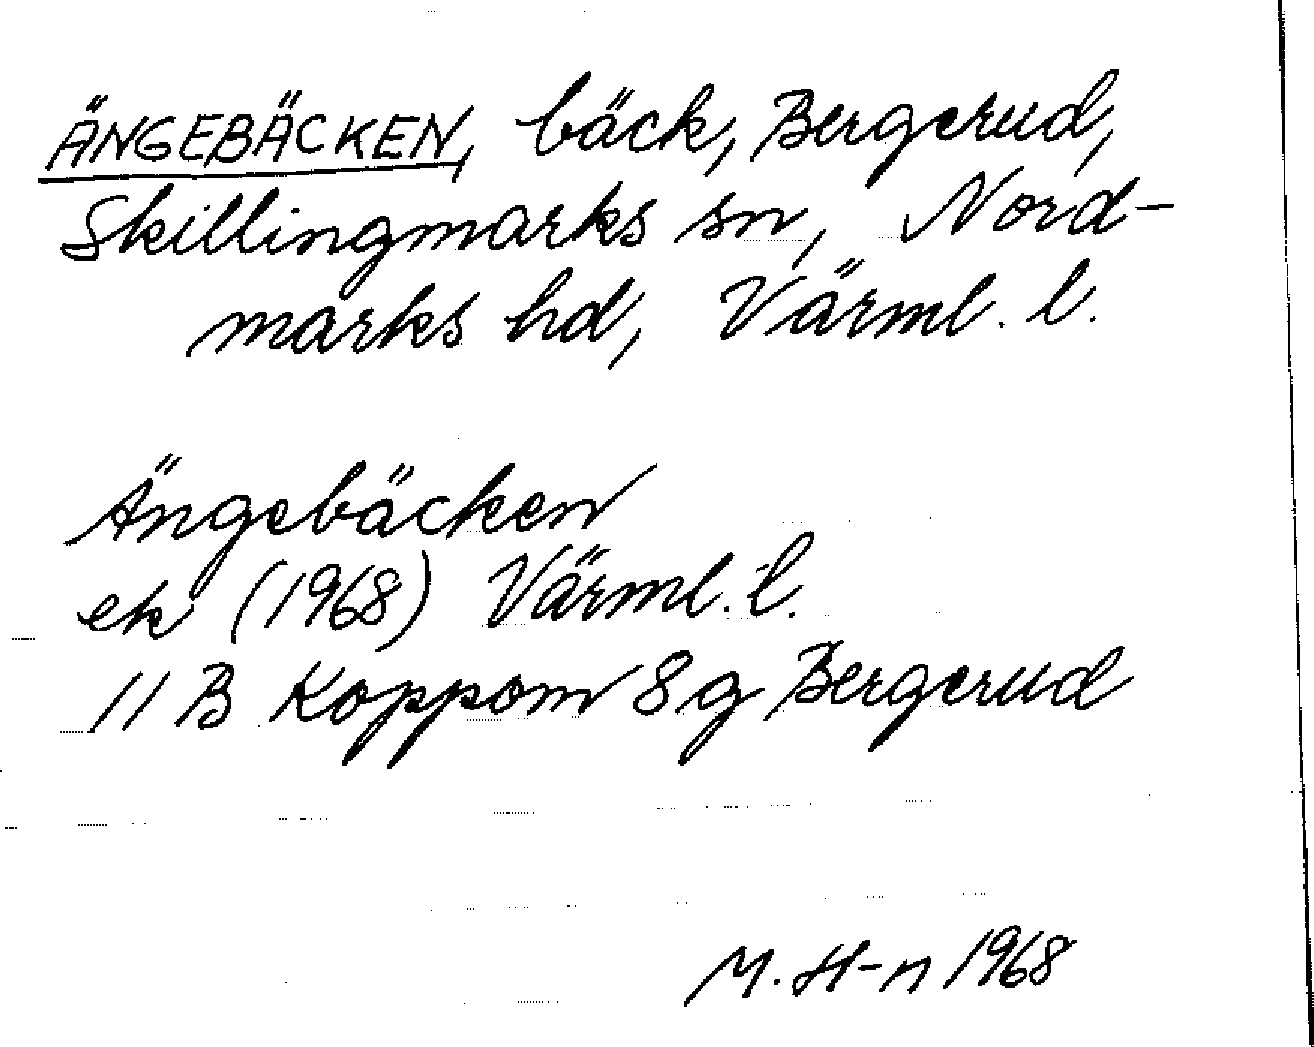 ÄNGEBÄCKEN, bäck, Bergerud,
Skillingmarks sn, Nord-
marks hd, Värml. l.
Ängebäcken
ek (1968) Värml. l.
11 B Koppom 8 g Bergerud
M. H-n 1968